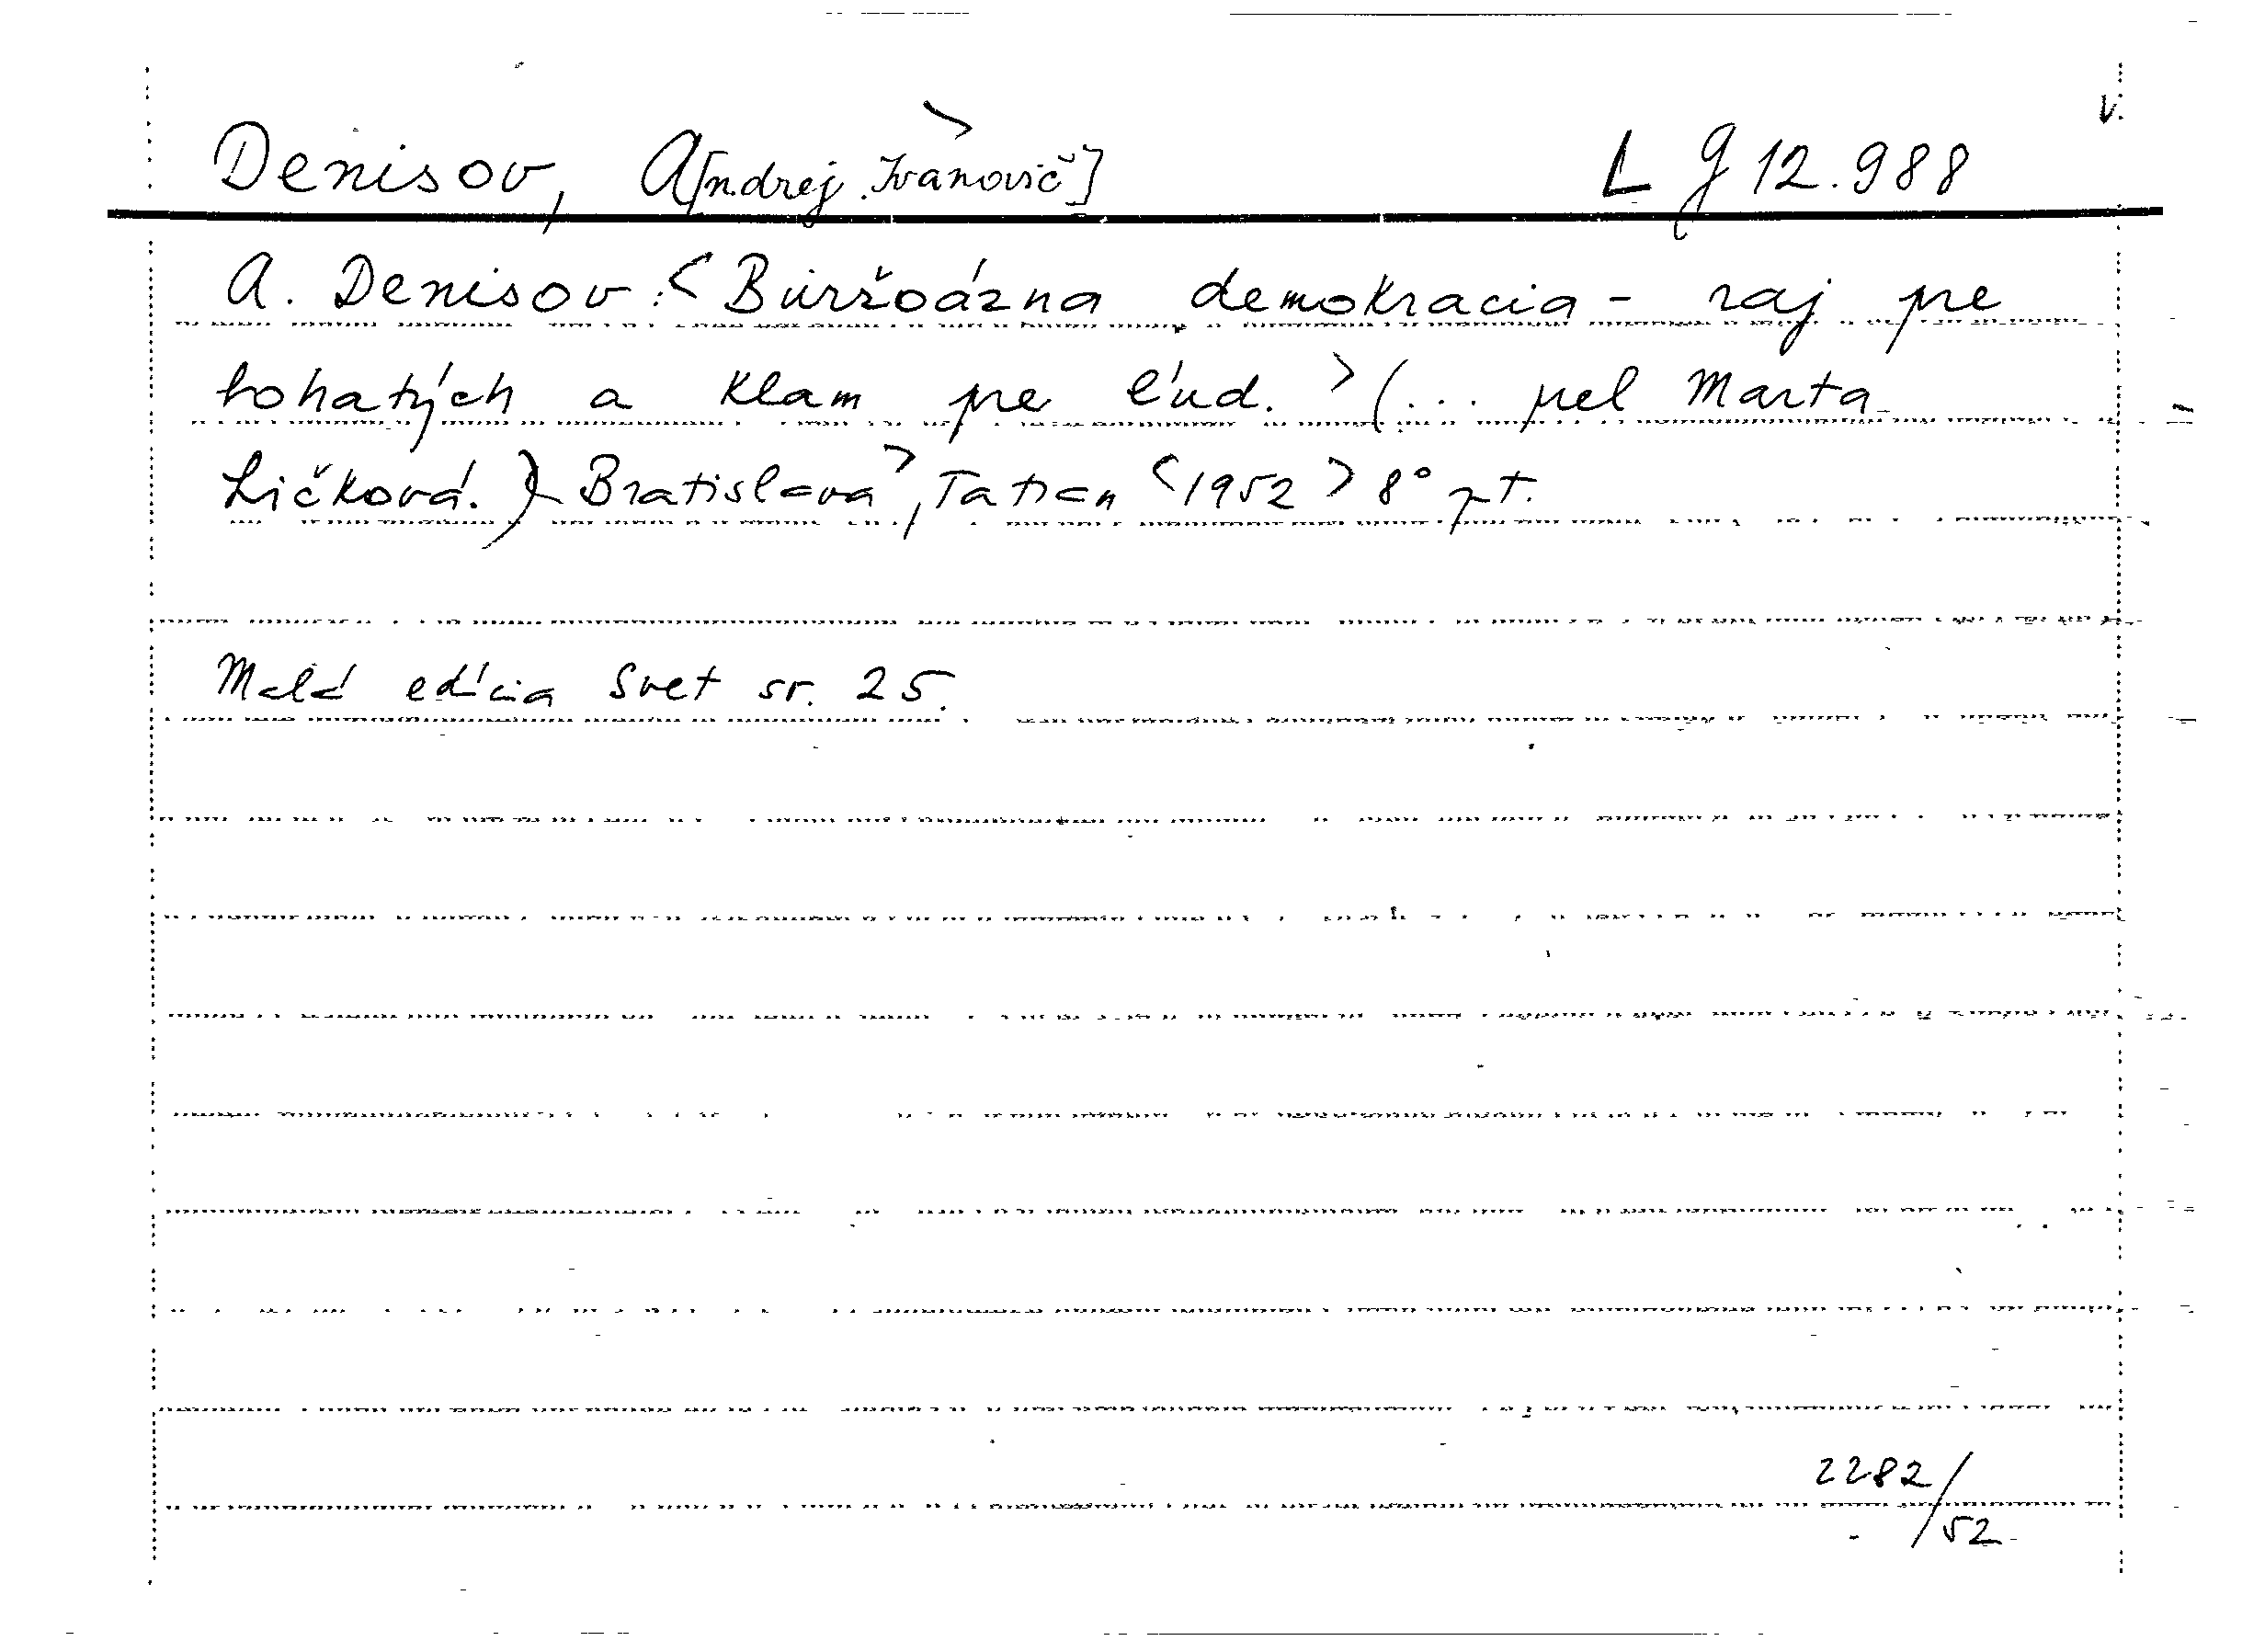 Denisov, A[ndrej Ivanovič] L g 12.988
A. Denisov: <Buržoázna demokracia - raj pre
bohatých a klam pre ľud.> (... prel Marta
Ličková.) Bratislava>, Tatran <1952> 8°
Malá edícia Svet sv. 25.
2282/
52